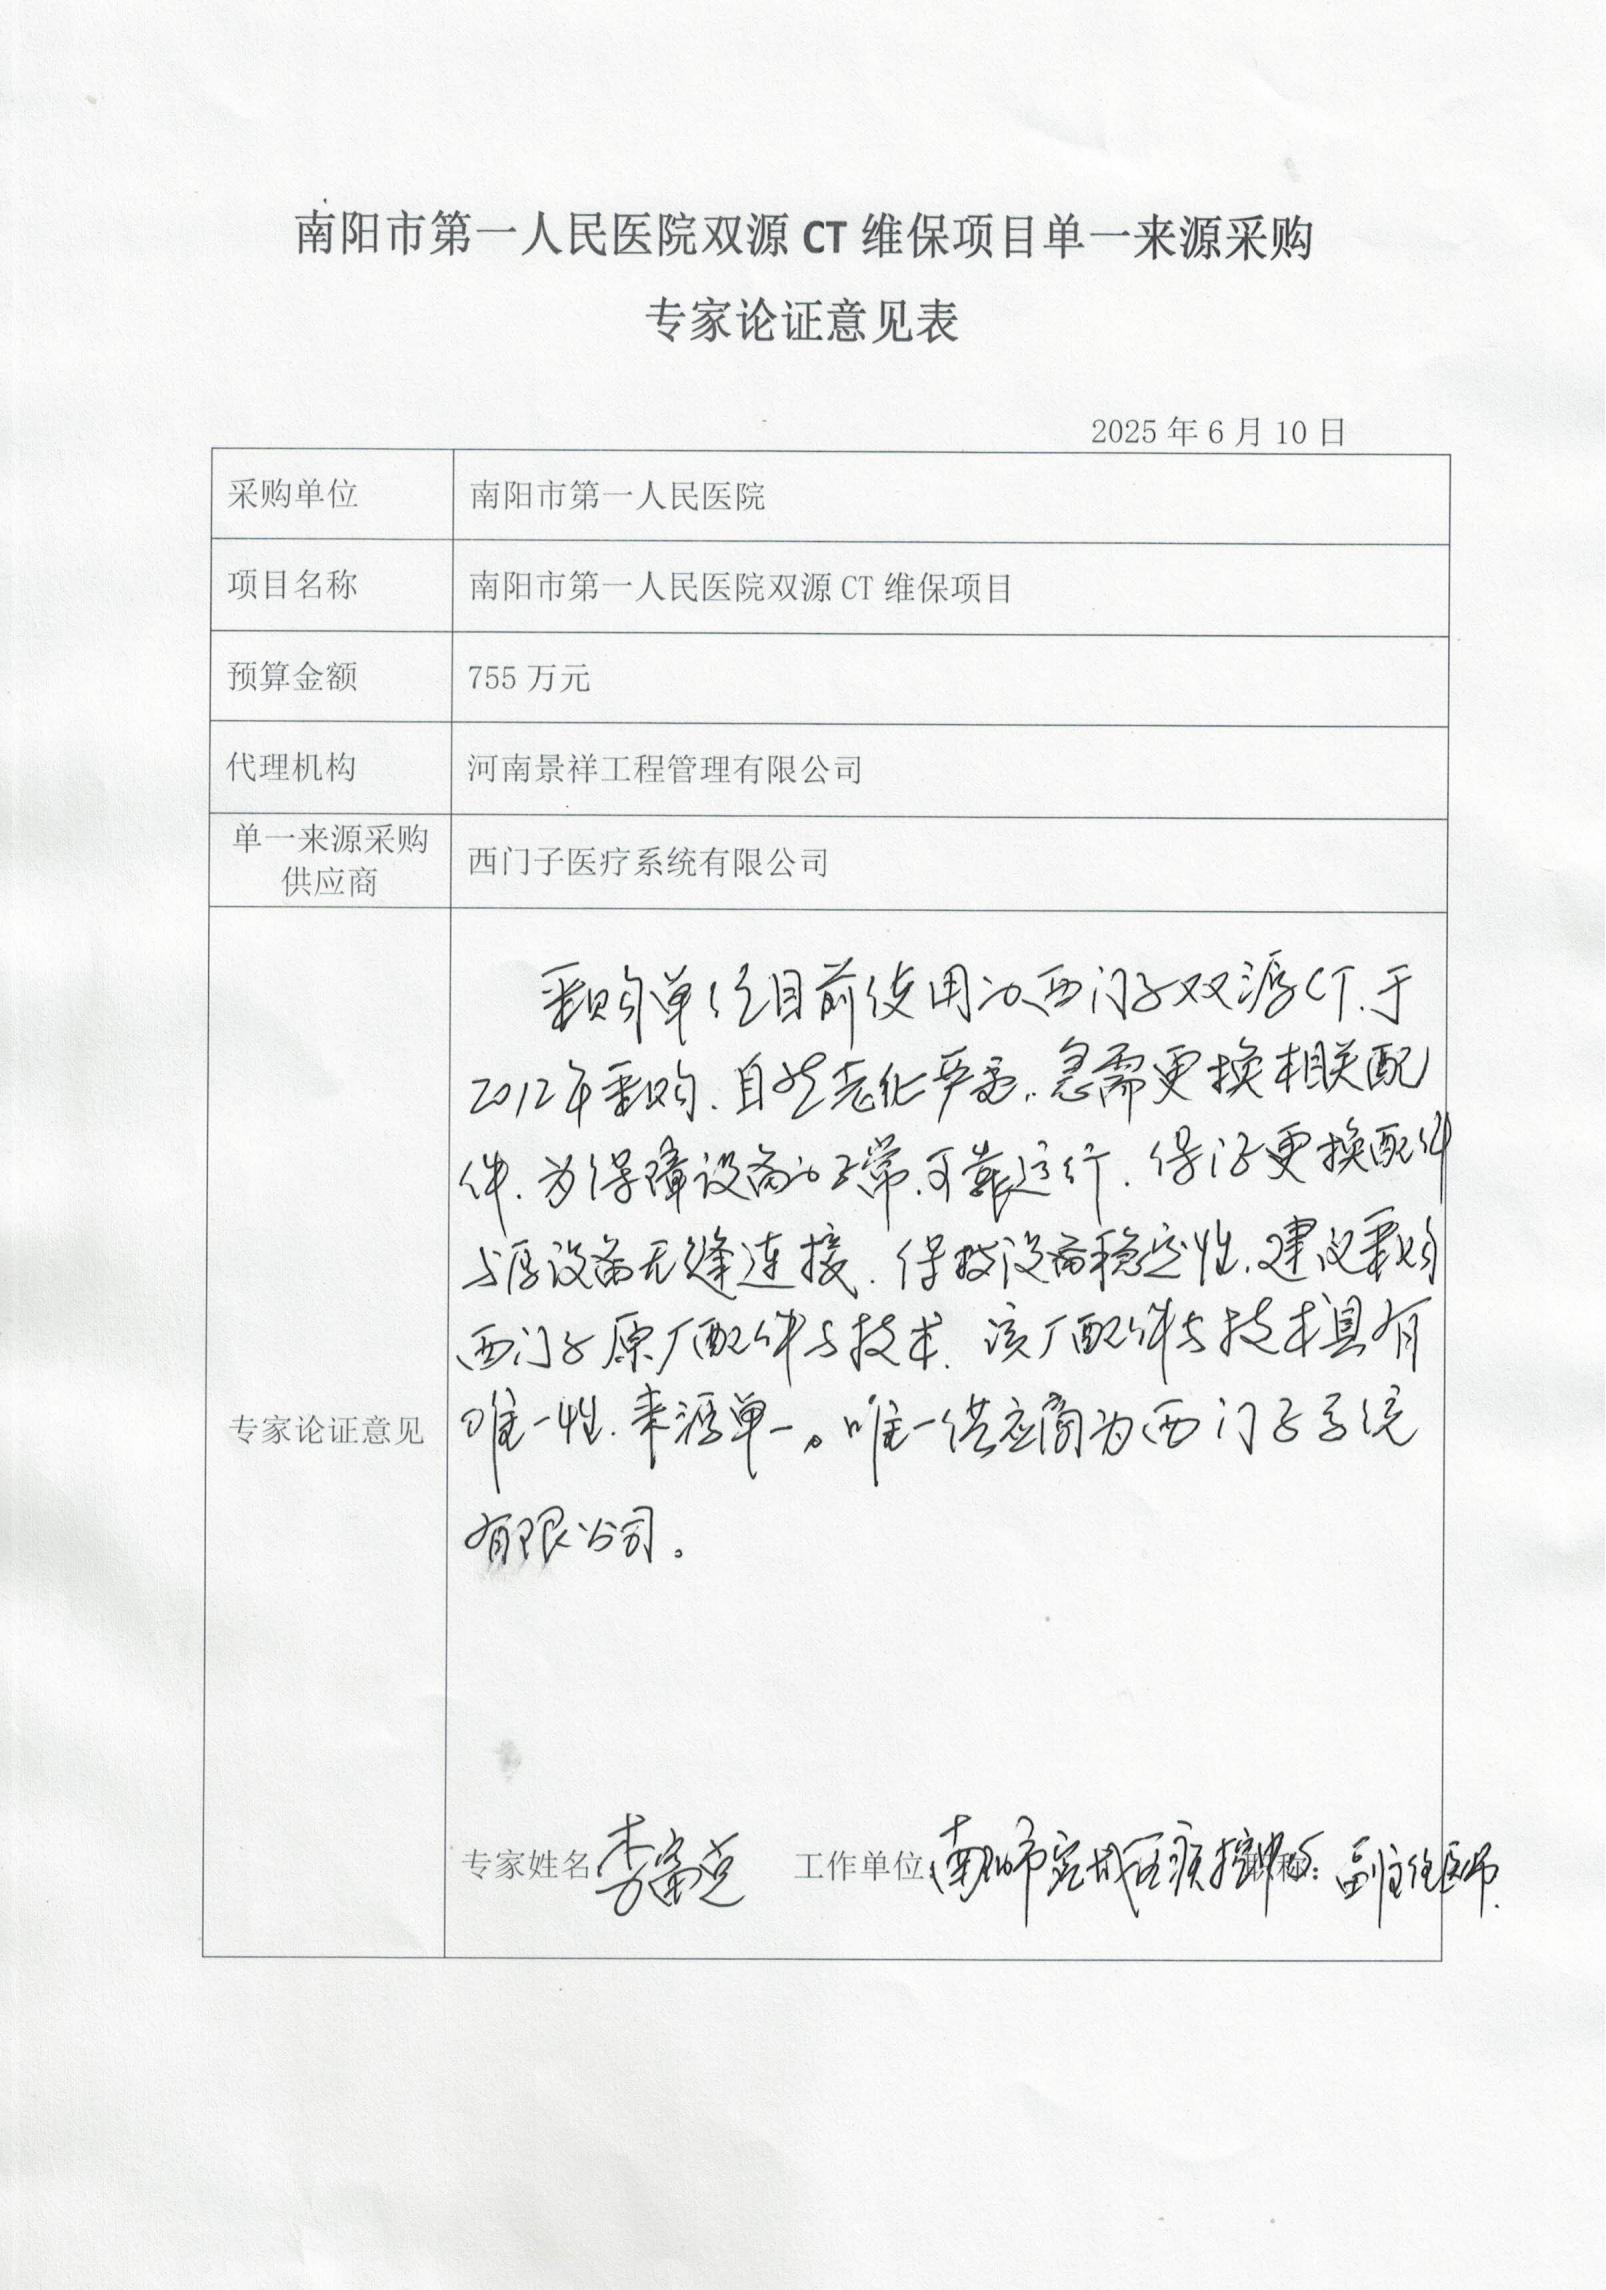 南阳市第一人民医院双源 CT 维保项目单一来源采购
专家论证意见表
2025 年 6 月 10 日
采购单位 南阳市第一人民医院
项目名称 南阳市第一人民医院双源 CT 维保项目
预算金额 755 万元
代理机构 河南景祥工程管理有限公司
单一来源采购
供应商
西门子医疗系统有限公司
专家论证意见
采购单位目前使用的西门子双源CT、于
2012年采购、自然老化严重、急需更换相关配
件、为保障设备的正常、可靠运行、保证更换配件
与原设备无缝连接、保持设备稳定性、建议采购
西门子原厂配件与技术、该厂配件与技术具有
唯一性、来源单一。唯一供应商为西门子系统
有限公司。
专家姓名 李 工作单位: 南阳市宛城区疾控中心 职称: 副主任医师